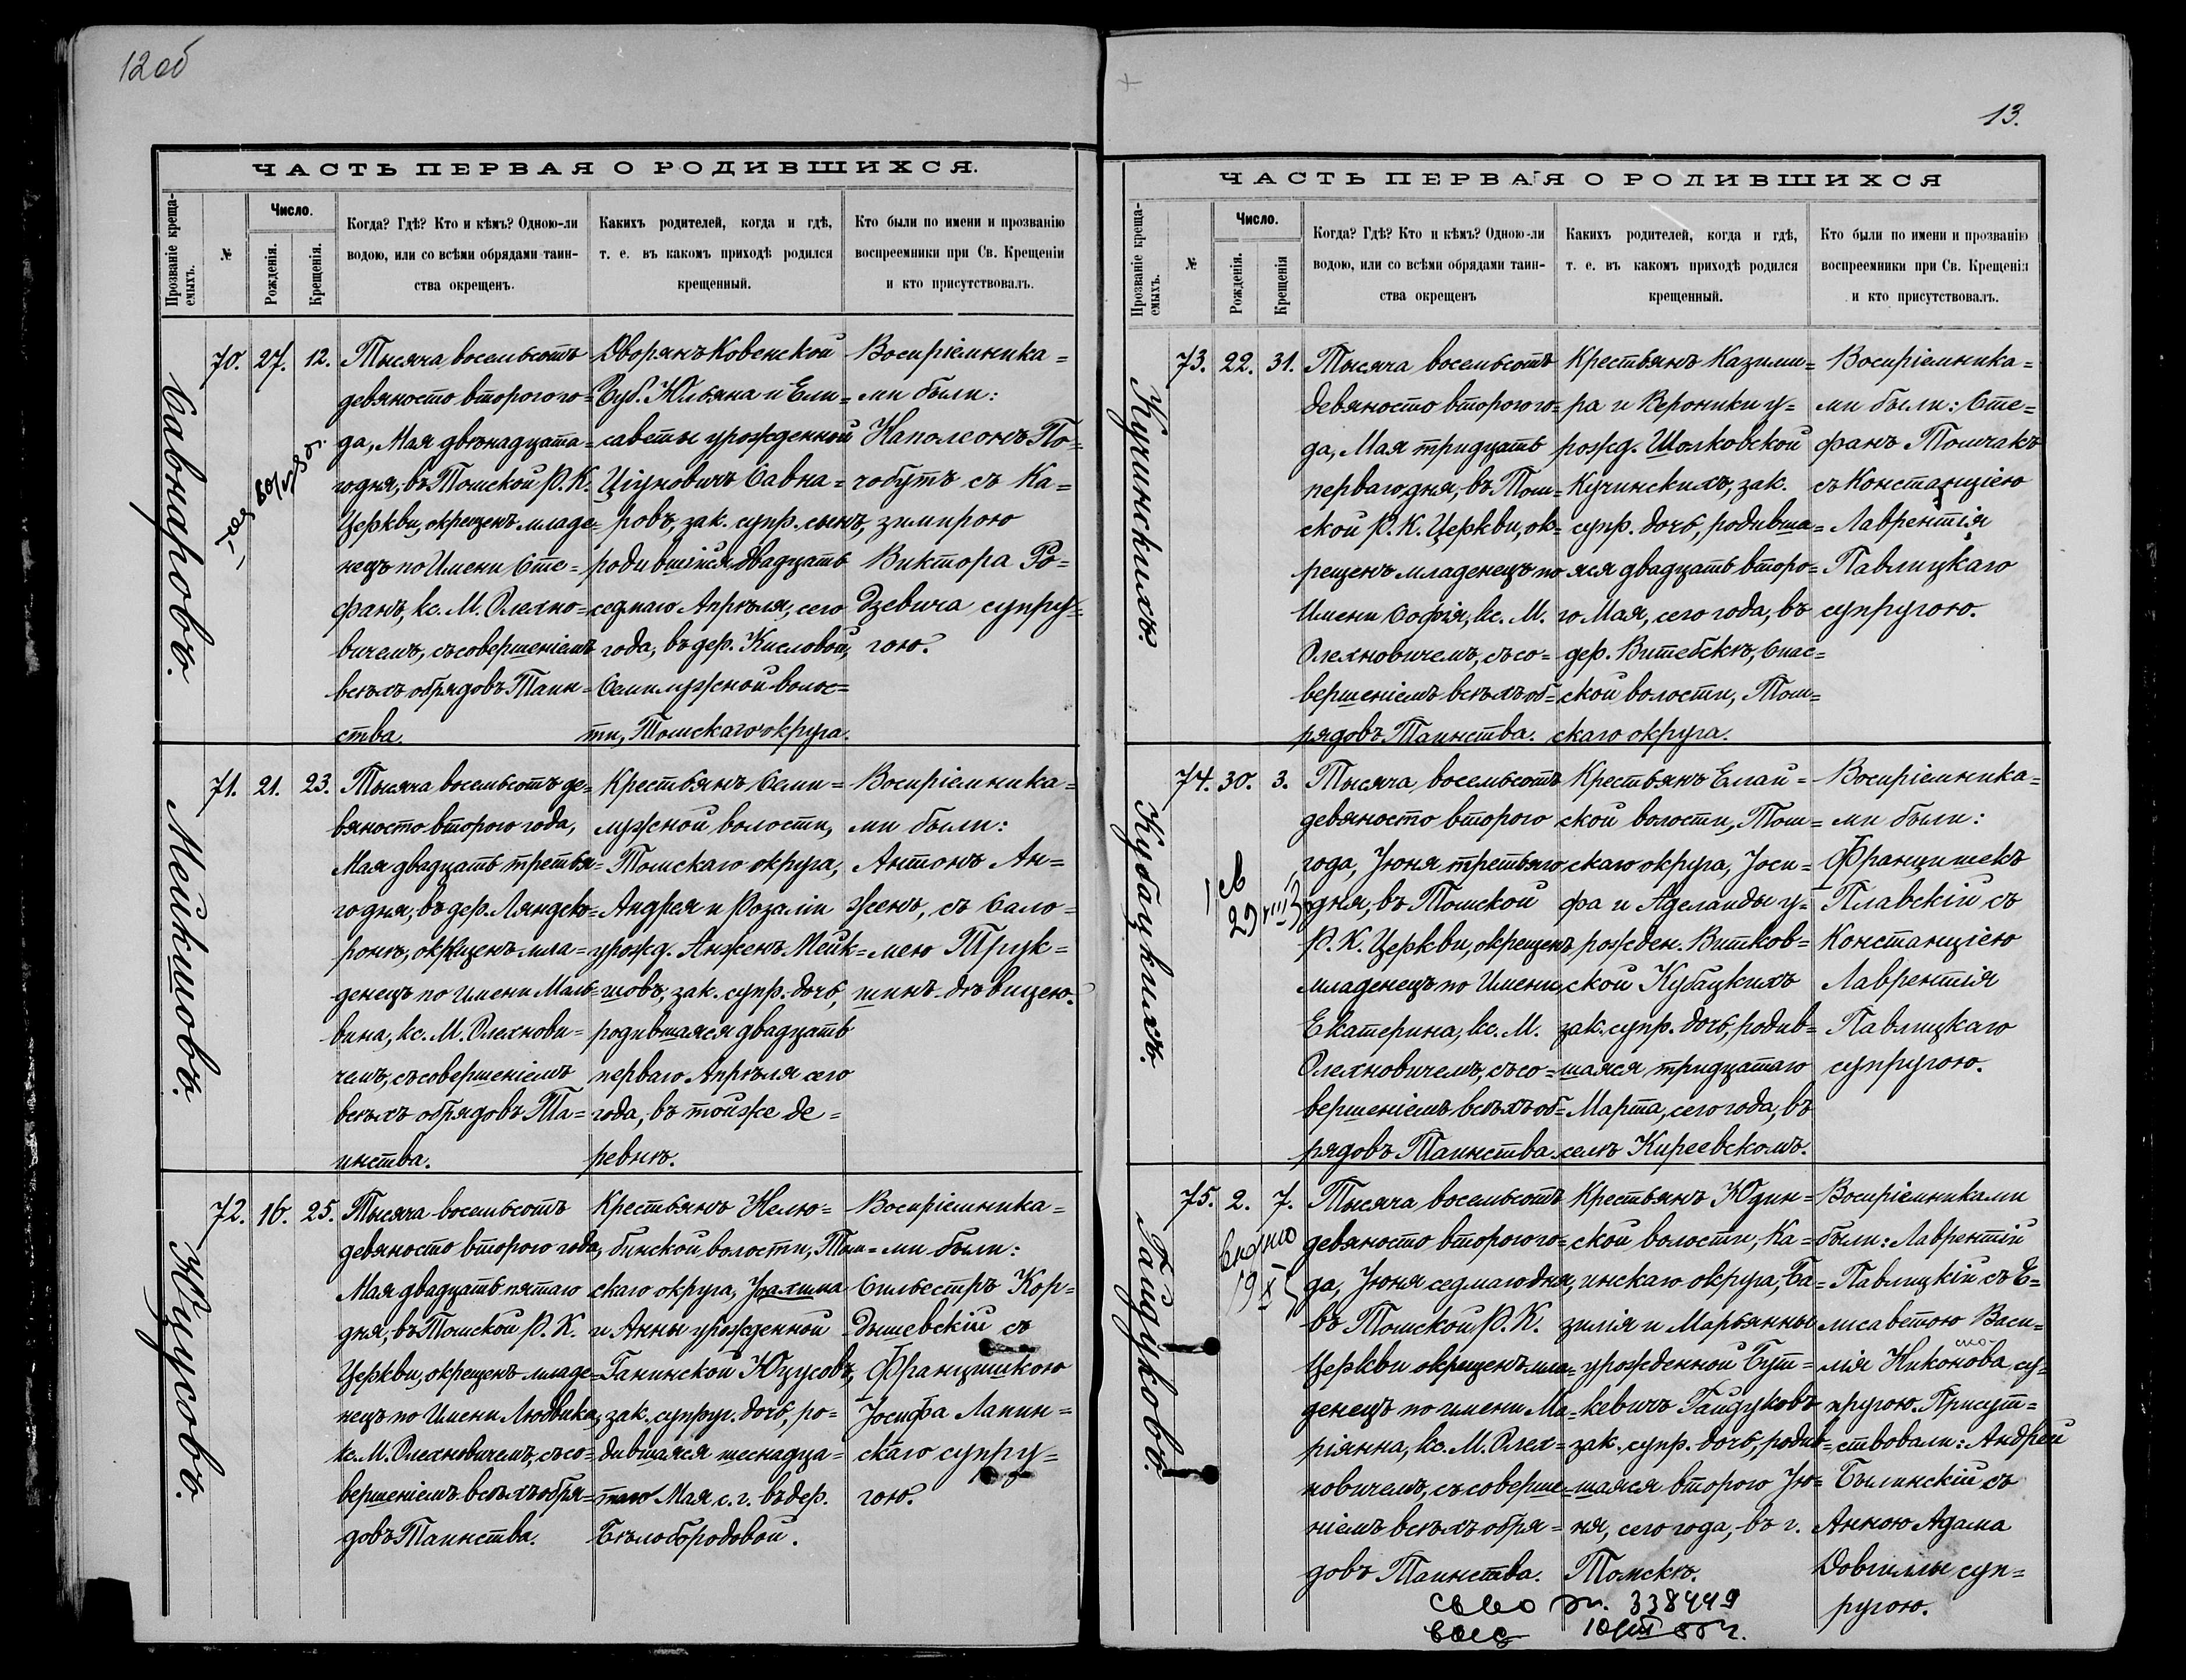 12 об
ЧАСТЬ ПЕРВАЯ О РОДИВШИХСЯ.
Прозваніе креща-
емыхъ.
№
Число.
Рожденія.
Крещенія.
Когда? Гдѣ? Кто и кѣмъ? Одною-ли
водою, или со всѣми обрядами таин-
ства окрещенъ.
Какихъ родителей, когда и гдѣ,
т. е. въ какомъ приходѣ родился
крещенный.
Кто были по имени и прозванію
воспреемники при Св. Крещеніи
и кто присутствовалъ.
Савнаровъ.
70. 27. 12.
Тысяча восемьсотъ
девяносто второго го=
да, Мая двѣнадцата=
го дня, въ Томской Р. К.
Церкви, окрещенъ младе=
нецъ по Имени Сте=
фанъ, кс. М. Олехно=
вичемъ, съ совершеніемъ
всѣхъ обрядовъ Таин=
ства.
Дворянъ Ковенской
Губ. Юльяна и Ели=
саветы урожденной
Ціуновичъ Савна=
ровъ, зак. супр. сынъ,
родившійся двадцать
седмаго Апрѣля, сего
года, въ дер. Кисловой,
Семилужной волос=
ти, Томскаго округа.
Воспріемника=
ми были:
Наполеонъ По=
чобутъ съ Ка=
зимирою
Виктора Ро=
дзевича супру=
гою.
Мейкшовъ.
71. 21. 23.
Тысяча восемьсотъ де=
вяносто второго года,
Мая двадцать третья=
го дня, въ дер. Ляндево=
ровѣ, окрещенъ мла=
денецъ по Имени Маль=
вина, кс. М. Олехнови=
чемъ, съ совершеніемъ
всѣхъ обрядовъ Та=
инства.
Крестьянъ Семи=
лужной волости,
Томскаго округа,
Андрея и Розаліи
урожд. Анженъ Мейк=
шовъ, зак. супр. дочь,
родившаяся двадцать
перваго Апрѣля сего
года, въ той же де=
ревнѣ.
Воспріемника=
ми были:
Антонъ Ан=
женъ, съ Сало=
меею Трук=
шинъ дѣвицею.
Юцусовъ.
72. 16. 25.
Тысяча восемьсотъ
девяносто второго года,
Мая двадцать пятаго
дня, въ Томской Р. К.
Церкви, окрещенъ младе=
нецъ по Имени Людвика,
кс. М. Олехновичемъ, съ со=
вершеніемъ всѣхъ обря=
довъ Таинства.
Крестьянъ Нелю=
бинской волости, Том=
скаго округа, Іоахима
и Анны урожденной
Ганинской Юцусовъ,
зак. супруг. дочь, ро=
дившаяся шеснадца=
таго Мая, с. г. въ дер.
Бѣлобородовой.
Воспріемника=
ми были:
Сильвестръ Кор=
дышевскій съ
Францишкою
Іосифа Лапин=
скаго супру=
гою.
13.
ЧАСТЬ ПЕРВАЯ О РОДИВШИХСЯ
Прозваніе креща-
емыхъ.
№
Число.
Рожденія.
Крещенія
Когда? Гдѣ? Кто и кѣмъ? Одною-ли
водою, или со всѣми обрядами таин-
ства окрещенъ
Какихъ родителей, когда и гдѣ,
т. е. въ какомъ приходѣ родился
крещенный.
Кто были по имени и прозванію
воспреемники при Св. Крещеніи
и кто присутствовалъ.
Кучинскихъ.
73. 22. 31.
Тысяча восемьсотъ
девяносто второго го=
да, Мая тридцать
перваго дня, въ Том=
ской Р. К. Церкви, ок=
рещенъ младенецъ по
Имени Софія, кс. М.
Олехновичемъ, съ со=
вершеніемъ всѣхъ об=
рядовъ Таинства.
Крестьянъ Казими=
ра и Вероники у=
рожд. Шолковской
Кучинскихъ, зак.
супр. дочь, родивша=
яся двадцать второ=
го Мая, сего года, въ
дер. Витебскѣ, Спас=
ской волости, Том=
скаго округа.
Воспріемника=
ми были: Сте=
фанъ Томчакъ
съ Констанціею
Лаврентія
Павлицкаго
супругою.
Кубацкихъ.
74. 30. 3.
Тысяча восемьсотъ
девяносто второго
года, Іюня третьяго
дня, въ Томской
Р. К. Церкви, окрещенъ
младенецъ по Имени
Екатерина, кс. М.
Олехновичемъ, съ со=
вершеніемъ всѣхъ об=
рядовъ Таинства.
Крестьянъ Елгай=
ской волости, Том=
скаго округа, Іоси=
фа и Аделаиды у=
рожден. Витков=
ской Кубацкихъ
зак. супр. дочь, родив=
шаяся тридцатаго
Марта, сего года, въ
селѣ Киреевскомъ.
Воспріемника=
ми были:
Францишекъ
Плавскій съ
Констанціею
Лаврентія
Павлицкаго
супругою.
Гайдуковъ.
75. 2. 7.
Тысяча восемьсотъ
девяносто второго го=
да, Іюня седмаго дня,
въ Томской Р. К.
Церкви окрещенъ мла=
денецъ по имени Ма=
ріянна, кс. М. Олех=
новичемъ, съ соверше=
ніемъ всѣхъ обря=
довъ Таинства.
Крестьянъ Юдин=
ской волости, Ка=
инскаго округа, Ба=
зилія и Марьянны
урожденной Бут=
кевичъ Гайдуковъ
зак. супр. дочь, родив=
шаяся второго Ію=
ня, сего года, въ г.
Томскѣ.
Воспріемниками
были: Лаврентій
Павлицкій съ Е=
лисаветою Васи=
лія Никонова су=
пругою. Присут=
ствовали: Андрей
Былинскій съ
Анною Адама
Довгиллы суп=
ругою.
338449